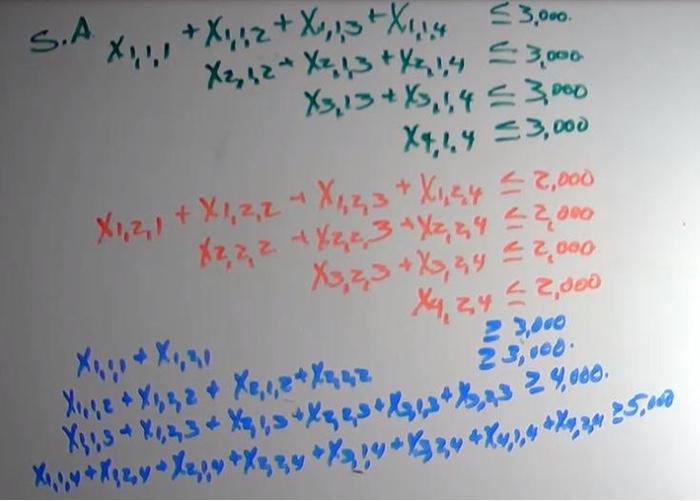 S.A X1,1,1 + X1,1,2 + X1,1,3 + X1,1,4 ≤ 3,000.
X2,1,2 + X2,1,3 + X2,1,4 ≤ 3,000
X3,13 + X3,1,4 ≤ 3,000
X4,1,4 ≤ 3,000
X1,2,1 + X1,2,2 + X1,2,3 + X1,2,4 ≤ 2,000
X2,2,2 + X2,2,3 + X2,2,4 ≤ 2,000
X3,2,3 + X3,2,4 ≤ 2,000
X4,2,4 ≤ 2,000
X1,1,1 + X1,2,1 ≥ 3,000
X1,1,2 + X1,2,2 + X2,1,2 + X2,2,2 ≥ 3,000.
X1,1,3 + X1,2,3 + X2,1,3 + X2,2,3 + X3,1,3 + X3,2,3 ≥ 4,000.
X1,1,4 + X1,2,4 + X2,1,4 + X2,2,4 + X3,1,4 + X3,2,4 + X4,1,4 + X4,2,4 ≥ 5,000